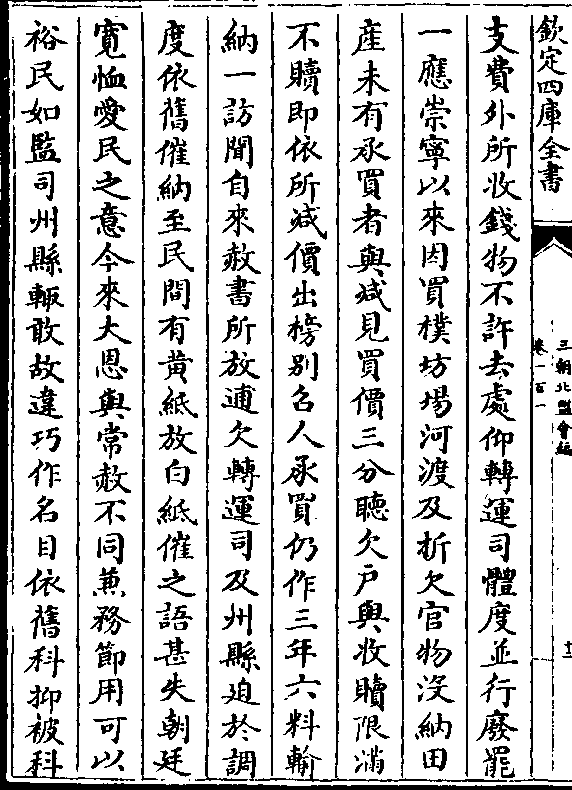 欽定四庫全書
三朝北盟會編
卷一百一
十二
支費外所收錢物不許去處仰轉運司體度並行廢罷
一應崇寧以來因買樸坊場河渡及折欠官物沒納田
產未有承買者與減見買價三分聽欠戶與收贖限滿
不贖即依所減價出榜别召人承買仍作三年六料輸
納一訪聞自來赦書所放逋欠轉運司及州縣廹於調
度依舊催納至民間有黄紙放白紙催之語甚失朝廷
寛恤愛民之意今來大恩與常赦不同兼務節用可以
裕民如監司州縣輙敢故違巧作名目依舊科抑被科